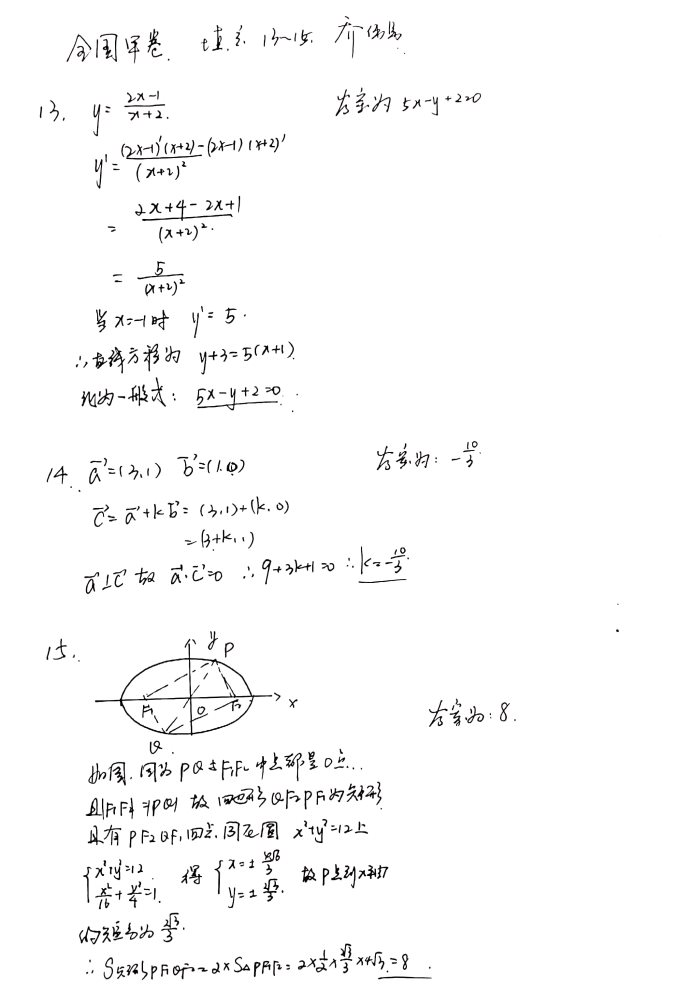 全国甲卷. 填空 13~15.
13. y = (2x-1)/(x+2). 答案为 5x-y+2=0
y' = ((2x-1)'(x+2)-(2x-1)(x+2)')/(x+2)²
= (2x+4-2x+1)/(x+2)².
= 5/(x+2)²
当 x=-1时 y'=5.
∴直线方程为 y+3=5(x+1)
化为一般式: 5x-y+2=0.
14. a⃗=(3,1) b⃗=(1.0) 答案为: -10/3
c⃗=a⃗+kb⃗=(3,1)+(k,0)
=(3+k,1)
a⃗⊥c⃗ 故 a⃗·c⃗=0 ∴9+3k+1=0 ∴k=-10/3
15. y P
F₁ O F₂ x
Q 答案为: 8.
如图.因为PQ与F₁F₂中点都是O点...
且|F₁F₂|=|PQ| 故四边形QF₂PF₁为矩形
且有PF₂QF₁四点同在圆 x²+y²=12上
{x²+y²=12 x²/16+y²/4=1. 得 {x=±4√6/3 y=±2√3/3. 故P点到x轴
的距离为 2√3/3.
∴S矩形PF₁QF₂=2×S△PF₁F₂=2×1/2×2√3/3×4√3=8.